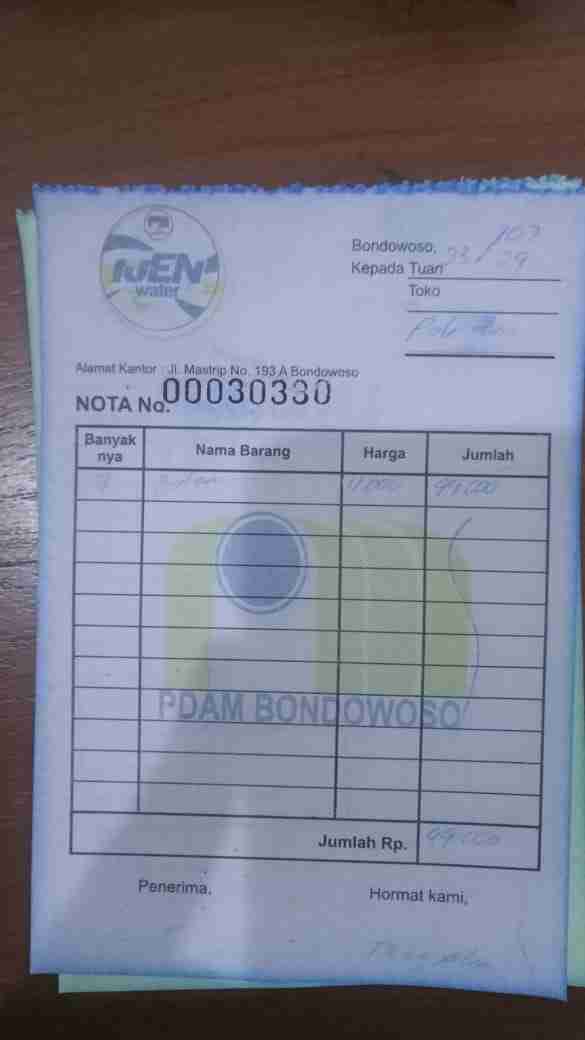 IJEN
water
Bondowoso, 23/03
29
Kepada Tuan
Toko
Alamat Kantor : Jl. Mastrip No. 193 A Bondowoso
NOTA No. 00030330
Banyak nya Nama Barang Harga Jumlah
9 11.000 99.000
PDAM BONDOWOSO
Jumlah Rp. 99.000
Penerima, Hormat kami,